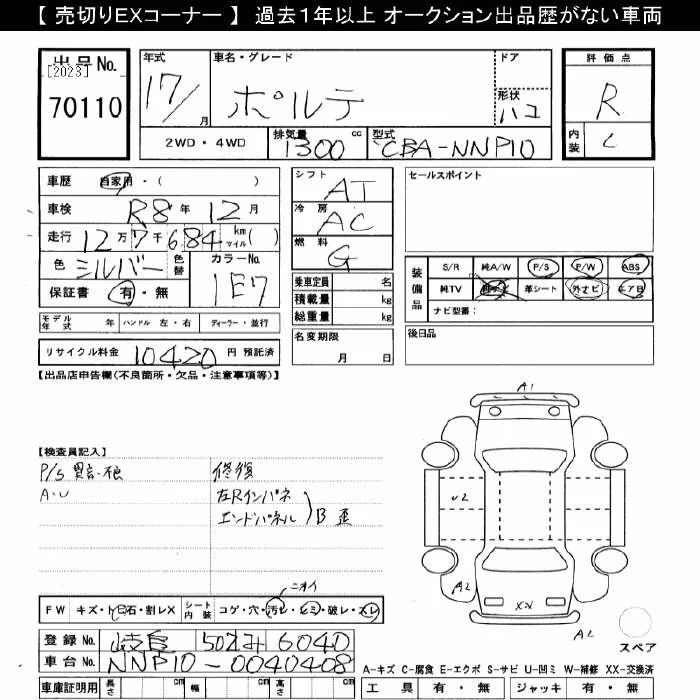 【 売切りEXコーナー 】 過去1年以上 オークション出品歴がない車両
出品No.
[2023]
70110
年式
17/月
車名・グレード
ポルテ
ドア
形状
ハコ
2WD・4WD
排気量
1300 cc
型式
CBA-NNP10
評価点
R
内装
C
車歴 自家用・( )
車検 R8年 12月
走行 12万7千684 km マイル ( )
色 シルバー 色替 カラーNo.
保証書 有・無 1E7
モデル年式 年 ハンドル 左・右 ディーラー・並行
リサイクル料金 10420 円 預託済
シフト AT
冷房 AC
燃料 G
乗車定員 名
積載量 kg
総重量 kg
名変期限
月 日
セールスポイント
装備品
S/R 純A/W P/S P/W ABS
純TV 革シート 外ナビ エアB
ナビ型番:
後日品
【出品店申告欄(不良箇所・欠品・注意事項等)】
【検査員記入】
P/S 異音・不良
A・U
修復
左Rインパネ
エンドパネル
B 歪
ニオイ
FW キズ・ト石・割レX シート内装 コゲ・穴・汚レ・シミ・破レ・スレ
登録No. 岐阜 502 6040
車台No. NNP10-0040408
車庫証明用 長 cm 幅 cm 高さ cm
A1
U2
A2
XX
A2
スペア
A-キズ C-腐食 E-エクボ S-サビ U-凹ミ W-補修 XX-交換済
工具 有・無 ジャッキ 有・無